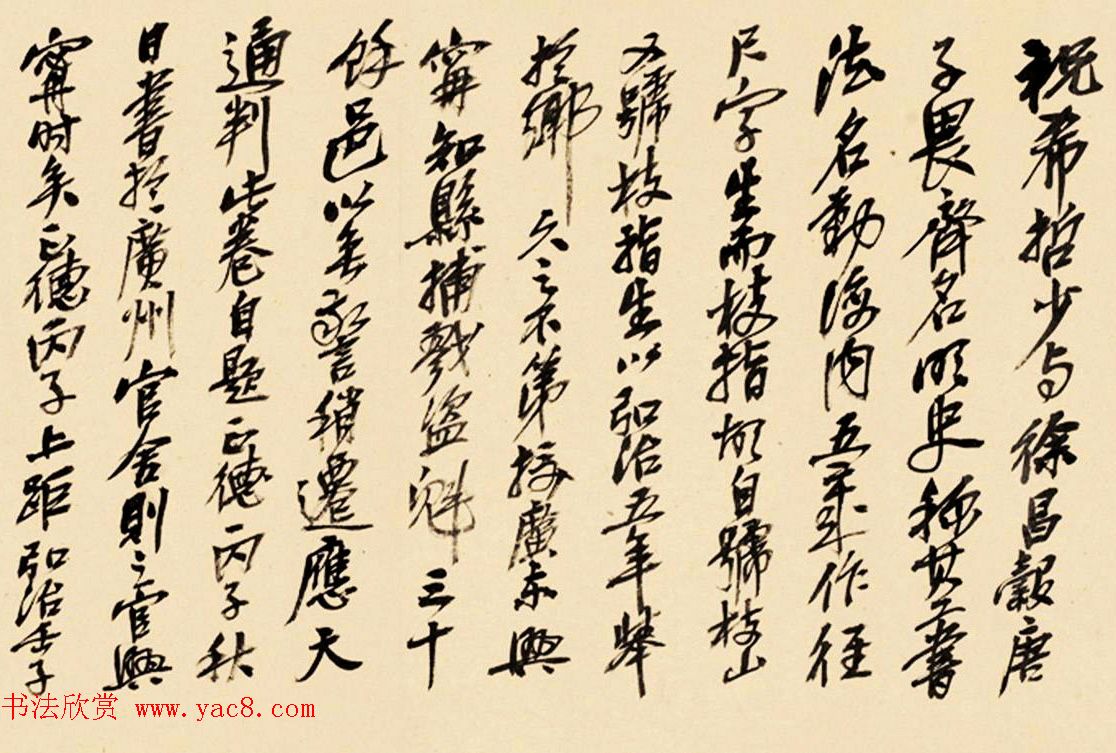 祝希哲少与徐昌榖唐
子畏齊名明史稱其工書
法名動海内五歲作径
尺字生而枝指故自號枝山
又號枝指生以弘治五年舉
於鄉久之不第授廣东興
寧知縣捕戮盜魁三十
餘邑以無警稍遷應天
通判此卷自題正德丙子秋
日書於廣州官舍則之官興
寧时矣正德丙子上距弘治壬子
书法欣赏 www.yac8.com